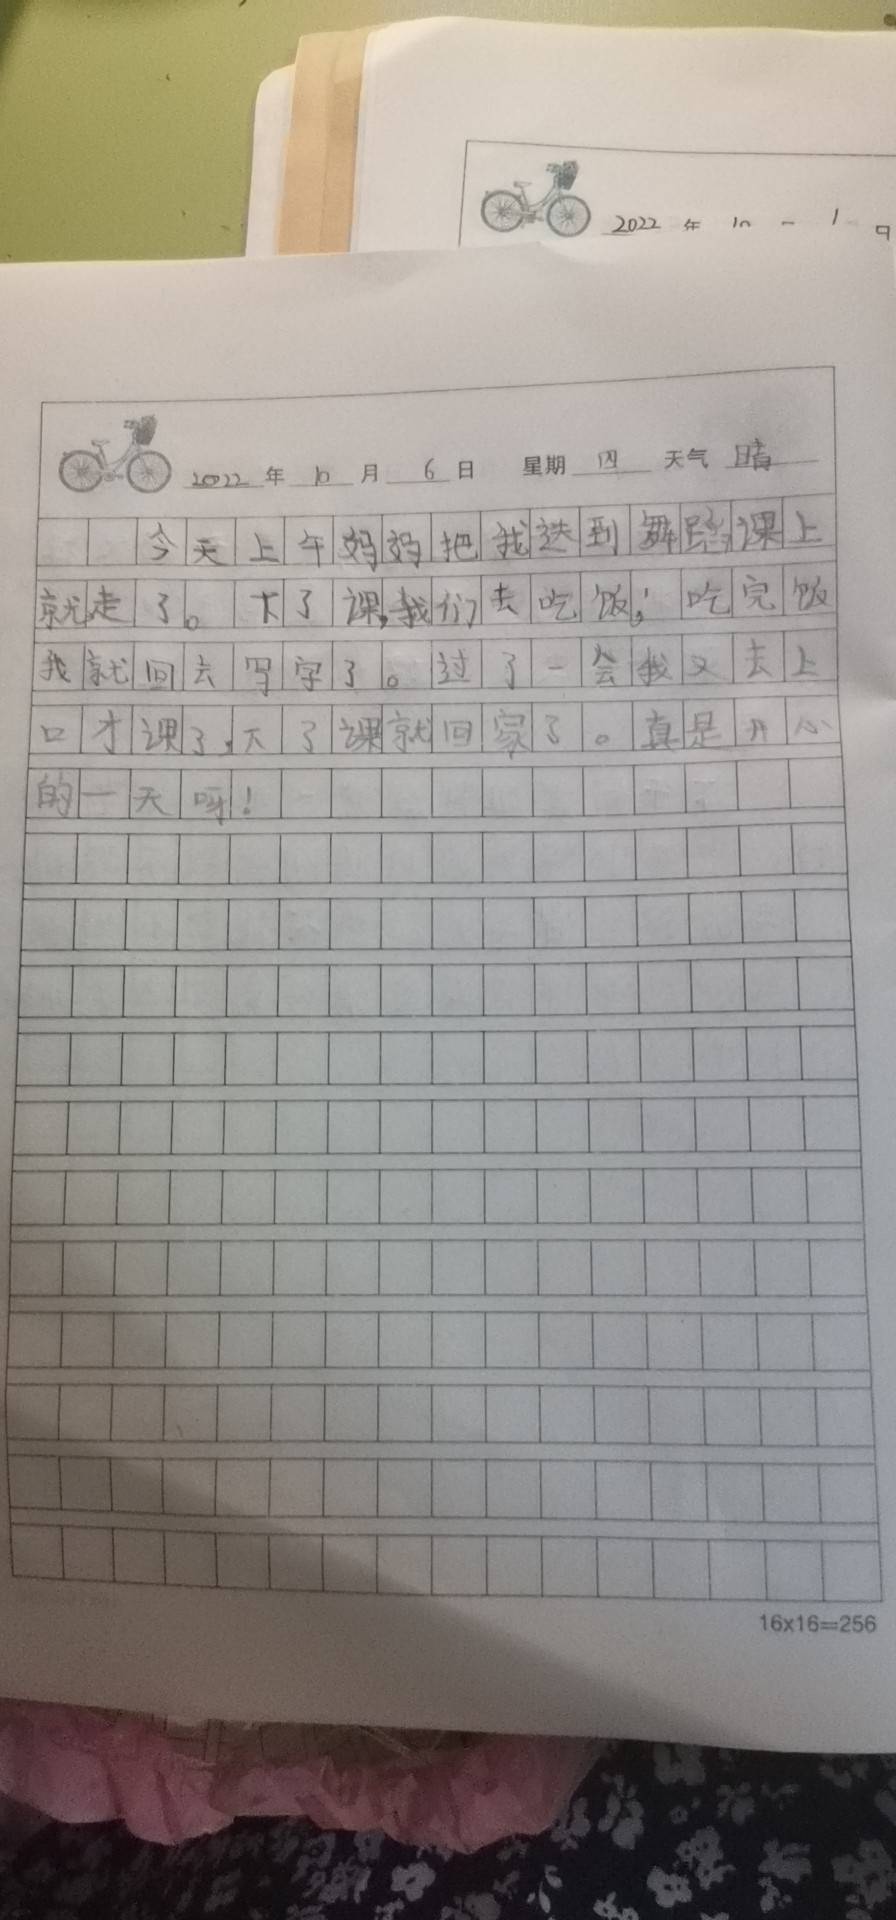 2022 年
2022 年 10 月 6 日 星期 四 天气 晴
今天上午妈妈把我送到舞蹈课上
就走了。下了课,我们去吃饭,吃完饭
我就回去写字了。过了一会我又去上
口才课了,下了课就回家了。真是开心
的一天呀!
16x16=256